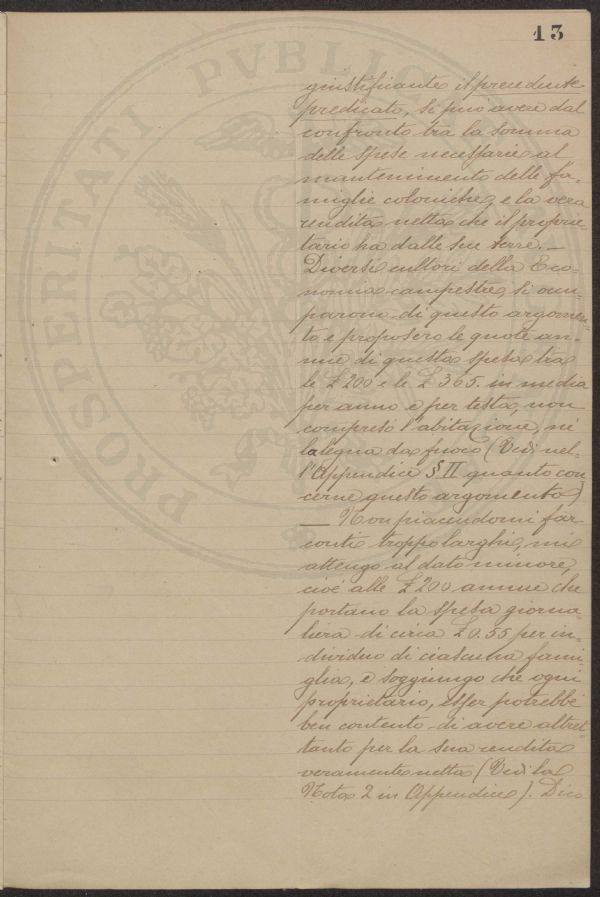 13
giustificante il precedente
predicato, si può avere dal
confronto tra la somma
delle spese necessarie al
mantenimento delle fa=
miglie coloniche, e la vera
rendita netta che il proprie
tario ha dalle sue terre. —
Diversi cultori della Eco=
nomia campestre, si occu=
parono di questo argomen=
to e proposero le quote an=
nue di questa spesa tra
le £ 200 e le £ 365. in media
per anno e per testa, non
compreso l'abitazione, nè
la legna da fuoco (Vedi nel=
l'Appendice § II quanto con
cerne questo argomento)
— Non piacendomi far
conti troppo larghi, mi
attengo al dato minore,
cioé alle £ 200 annue che
portano la spesa giorna=
liera di circa £ 0.55 per in=
dividuo di ciascuna fami=
glia, e soggiungo che ogni
proprietario, esser potrebbe
ben contento di avere altret=
tanto per la sua rendita
veramente netta (Vedi la
Nota 2 in Appendice). Dico
PROSPERITATI PVBLIC